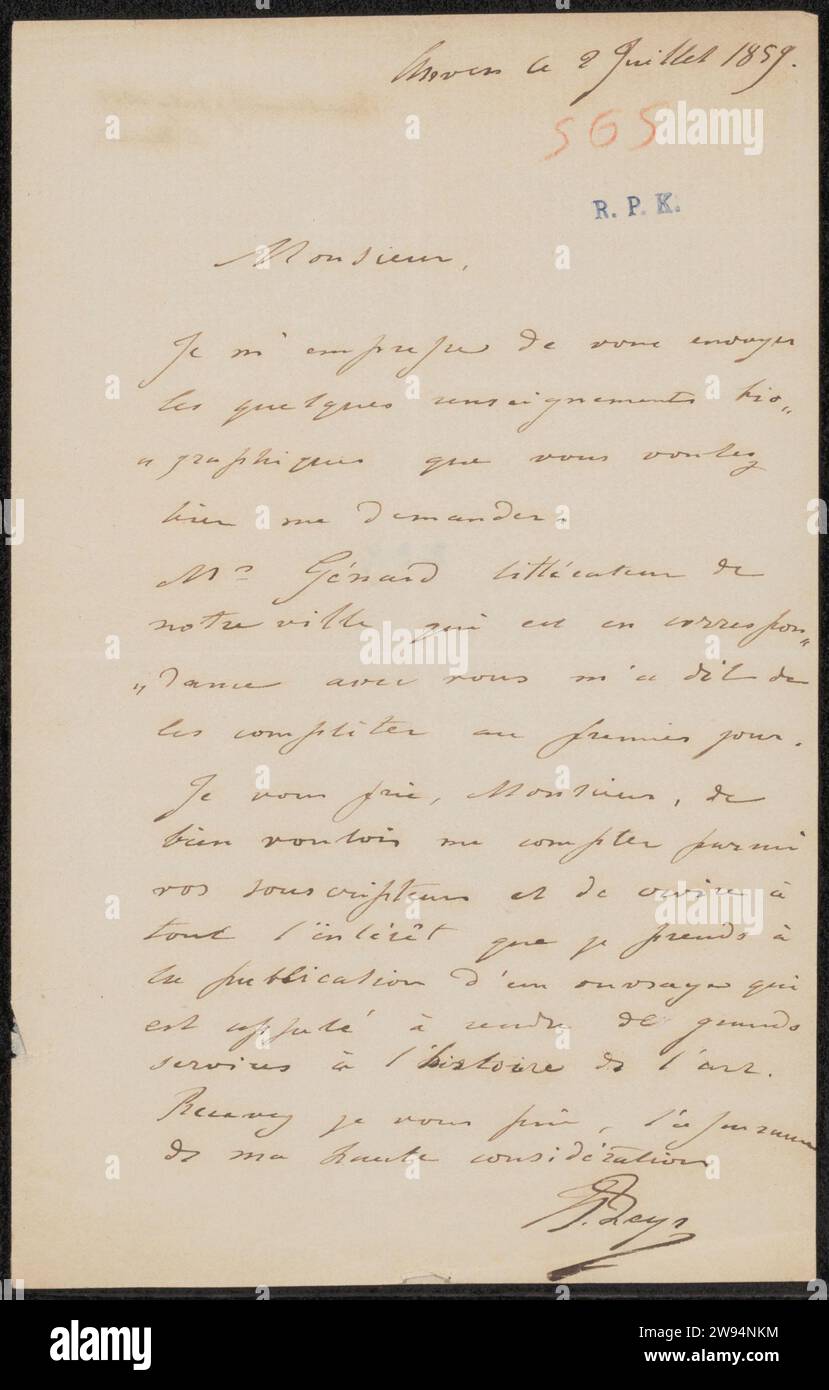 Anvers le 2 Juillet 1859.
565
R. P. K.
Monsieur,
Je m'empresse de vous envoyer
les quelques renseignements bio„
„graphiques que vous voulez
bien me demander.
Mr Génard littérateur de
notre ville qui est en correspon„
„dance avec vous m'a dit de
les compléter au premier jour.
Je vous prie, Monsieur, de
bien vouloir me compter parmi
vos souscripteurs et de croire à
tout l'intérêt que je prends à
la publication d'un ouvrage qui
est appelé à rendre de grands
services à l'histoire de l'art.
Recevez je vous prie, l'assurance
de ma haute considération
H. Leys
alamy
Image ID: 2W94NKM
www.alamy.com